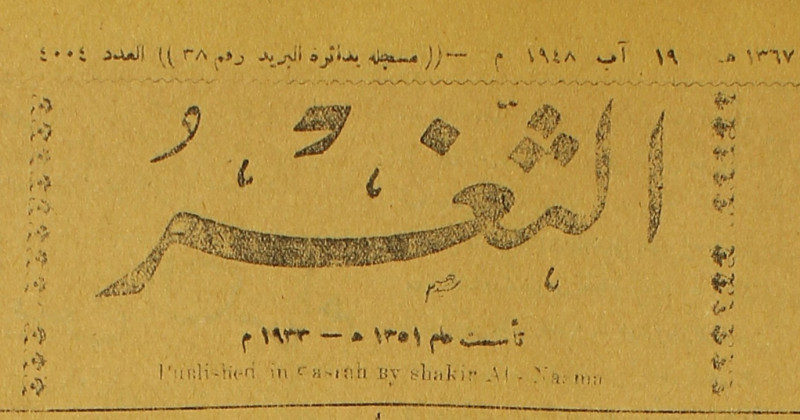 ١٣٦٧ هـ ١٩ آب ١٩٤٨ م —(( مسجله بدائرة البريد رقم ٣٨ )) العدد ٤٠٠٤
الثغر
تأسست عام ١٣٥١ هـ — ١٩٣٣ م
Published in Basrah By shakir Al-Naama